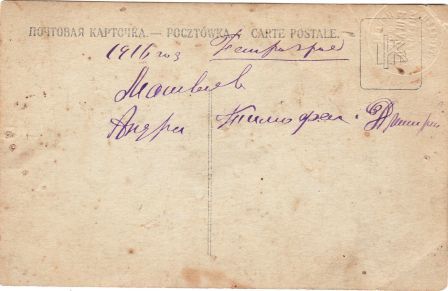 ПОЧТОВАЯ КАРТОЧКА.— POCZTÓWKA.— CARTE POSTALE.
1916 год Петроград
Матвеев
Андрей Тимофей. Дмитрий